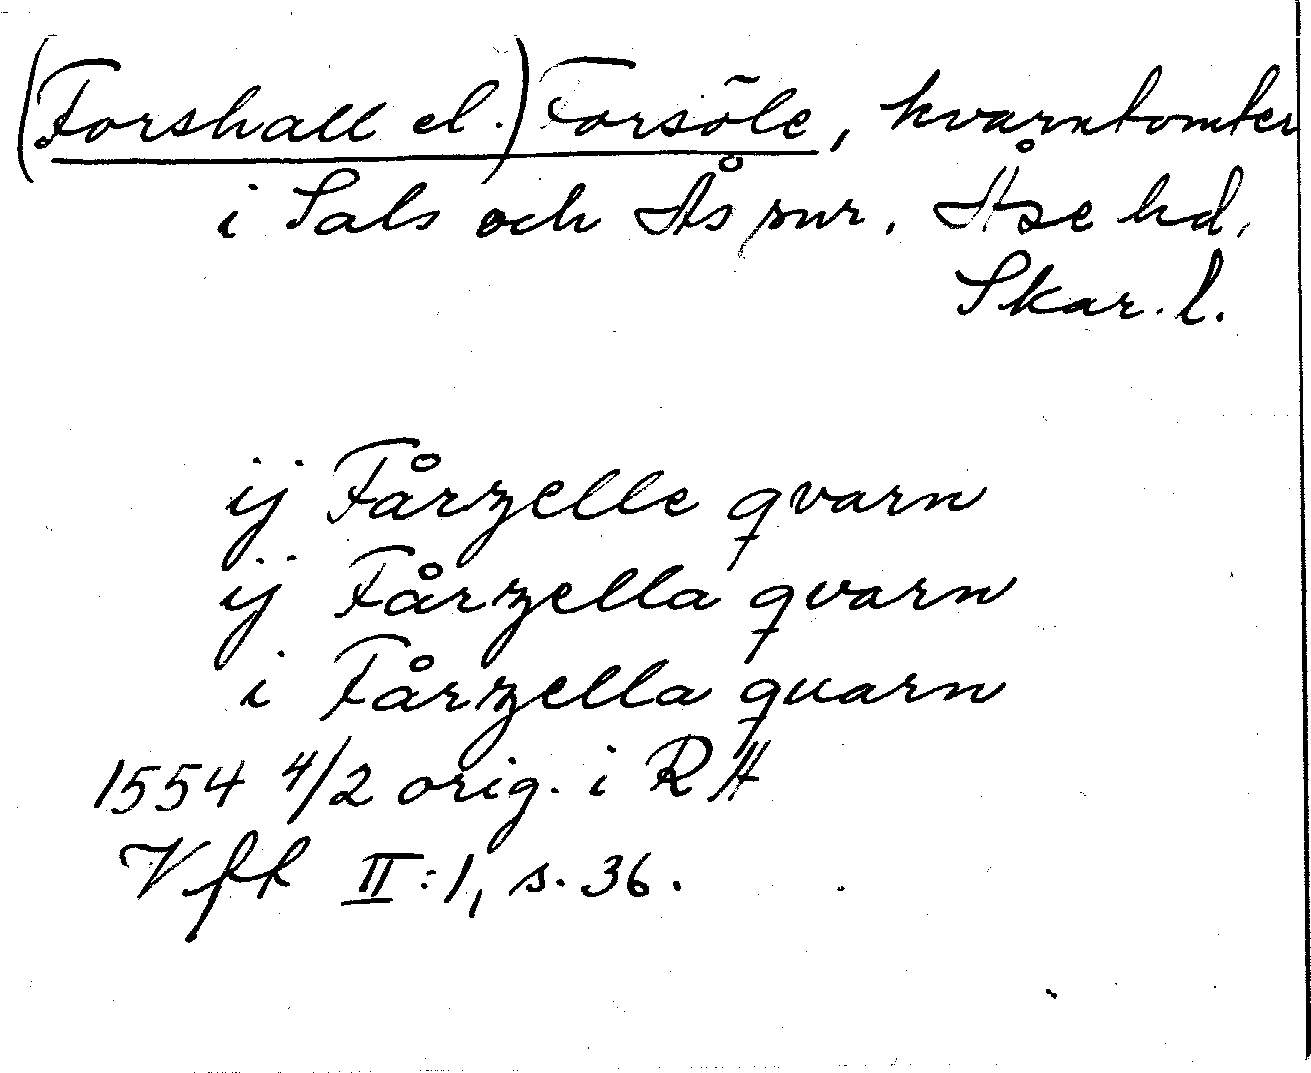 (Forshall el.) Forsöle, kvarntomter
i Sals och Ås snr. Åse hd,
Skar. l.
ij Fårzelle qvarn
ij Fårzella qvarn
i Fårzella quarn
1554 4/2 orig. i RA
Vfk II:1, s. 36.